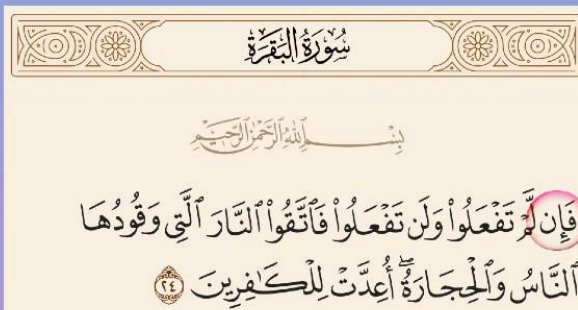 سُورَةُ البَقَرَةِ
بِسْمِ اللَّهِ الرَّحْمَٰنِ الرَّحِيمِ
فَإِن لَّمْ تَفْعَلُوا۟ وَلَن تَفْعَلُوا۟ فَٱتَّقُوا۟ ٱلنَّارَ ٱلَّتِى وَقُودُهَا
ٱلنَّاسُ وَٱلْحِجَارَةُ ۖ أُعِدَّتْ لِلْكَـٰفِرِينَ ٢٤